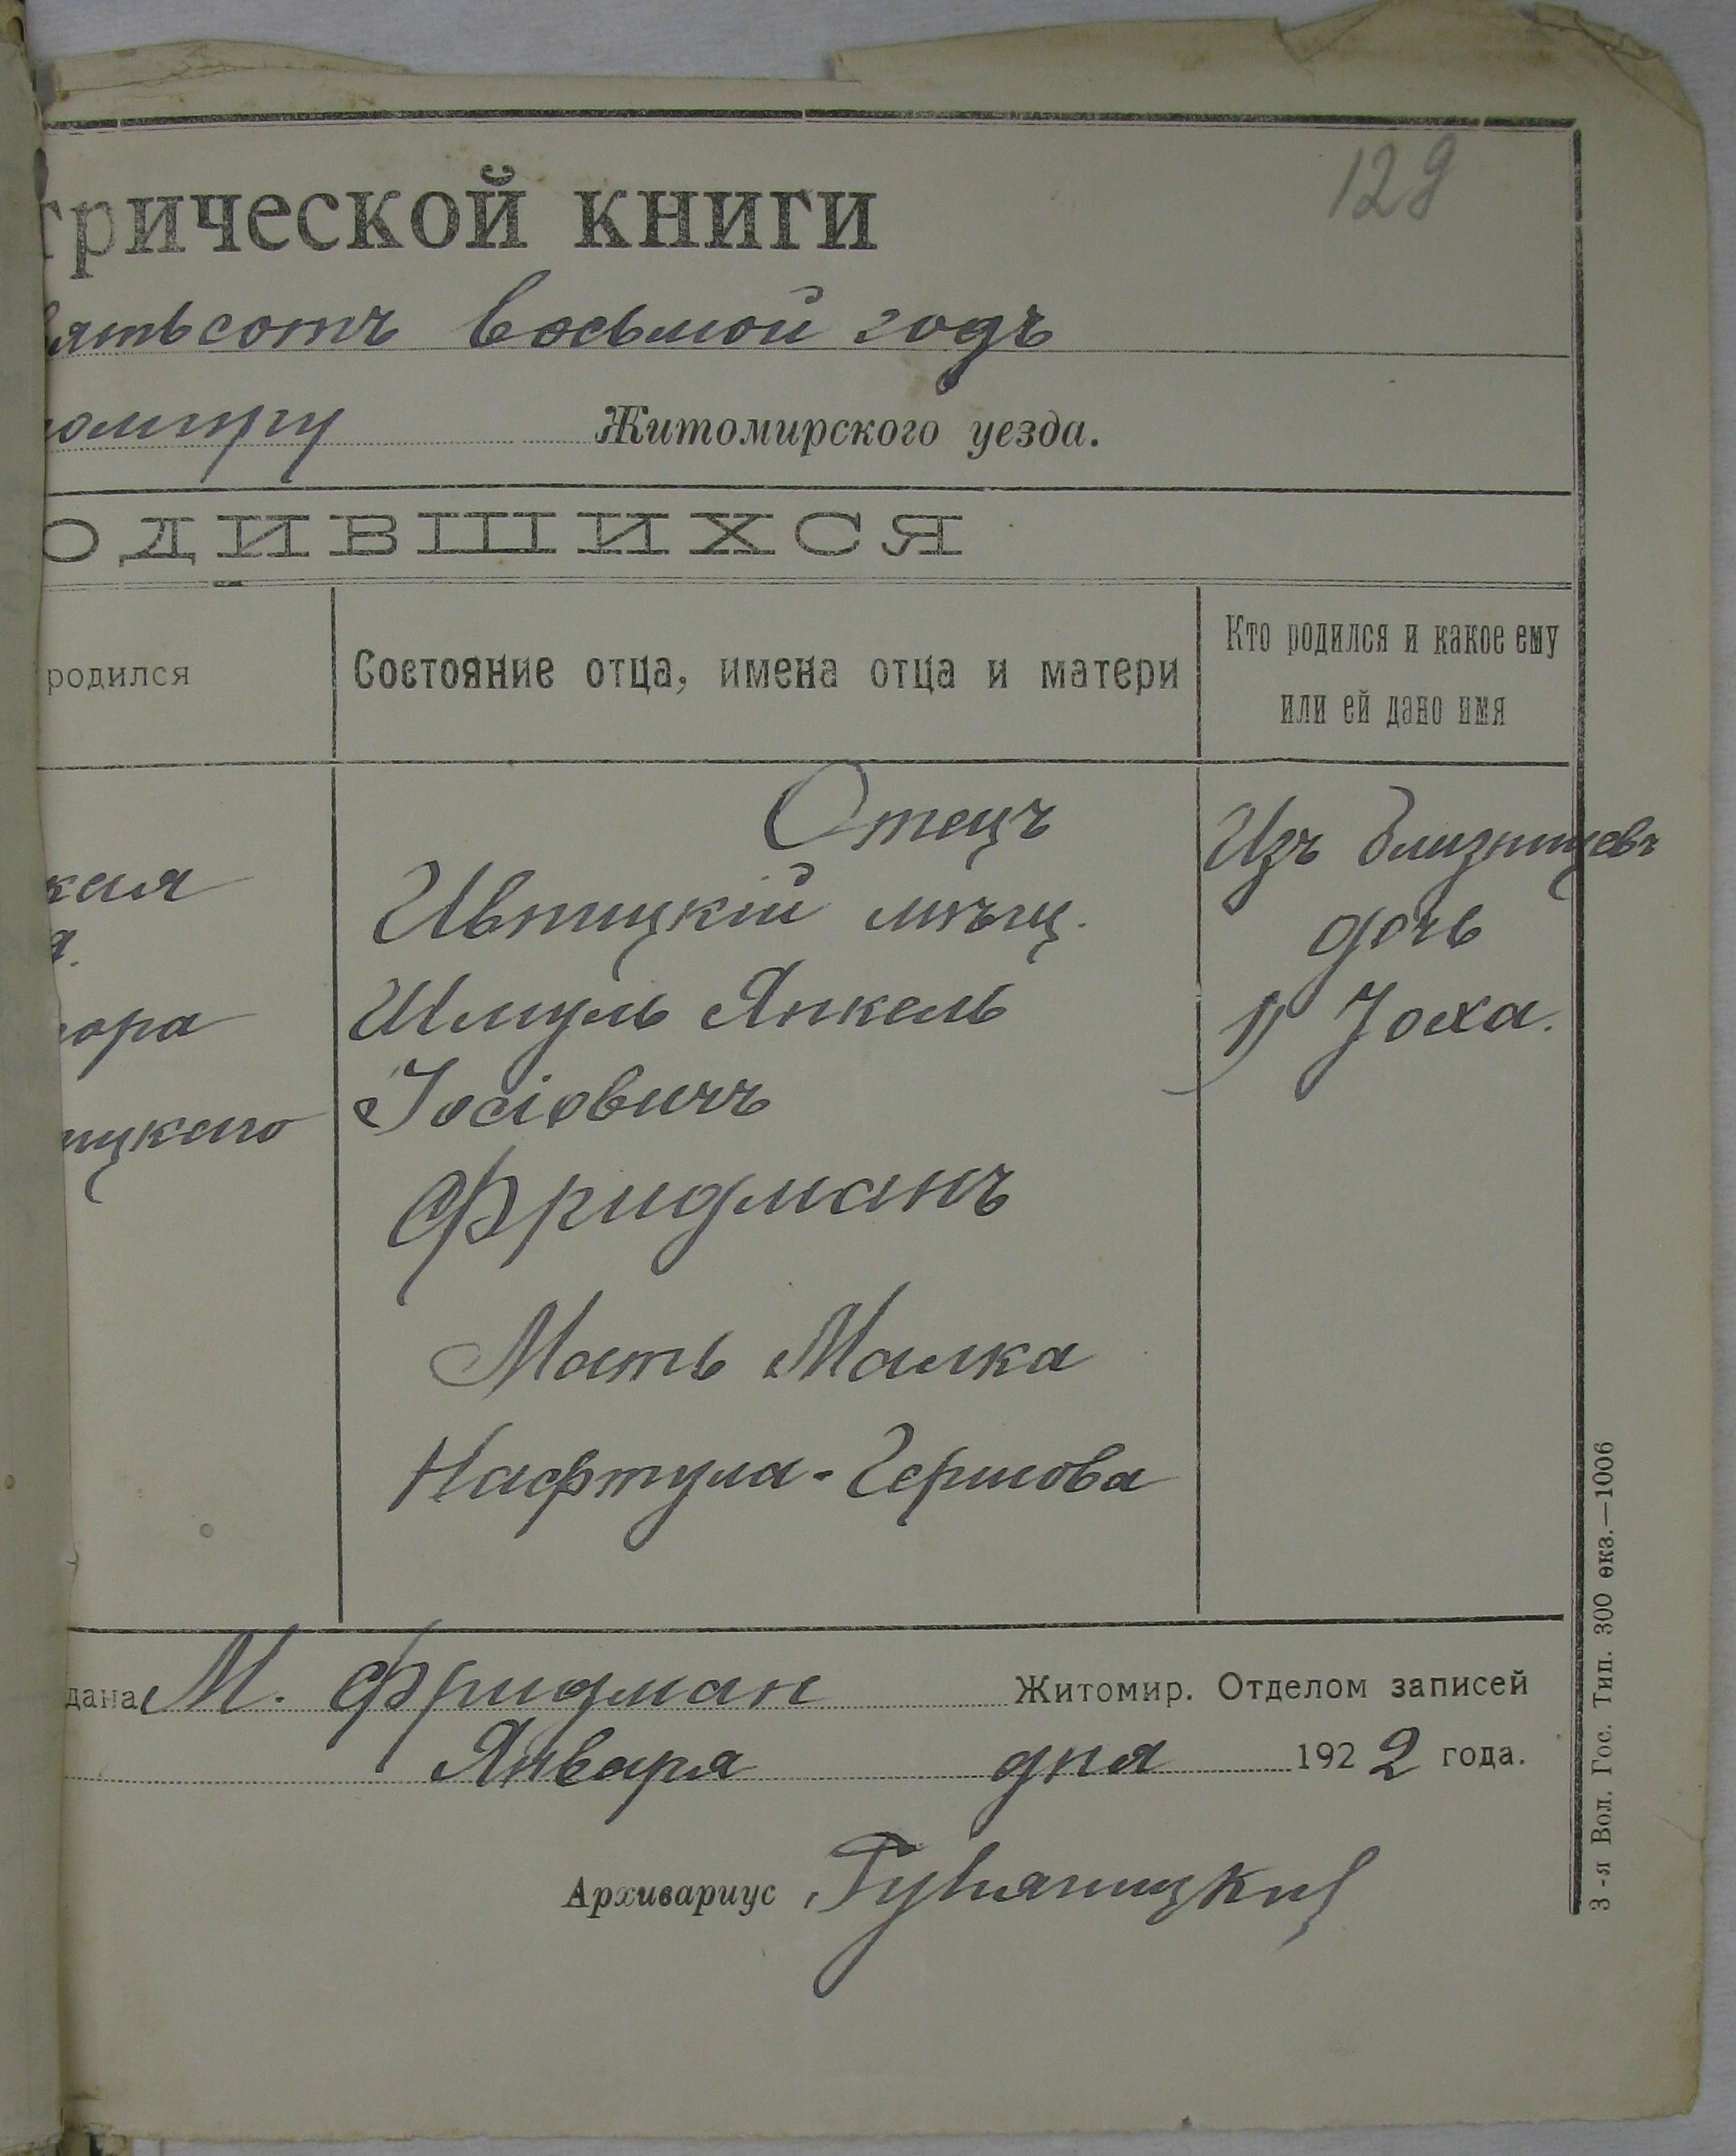 129
трической книги
вятьсотъ восьмой годъ
томиру Житомирского уезда.
ОДИВШИХСЯ
родился
Состояние отца, имена отца и матери
Кто родился и какое ему
или ей дано имя
кая
тора
ицкаго
Отецъ
Ивницкій мѣщ.
Шмуль Янкель
Іосіовичъ
Фридманъ
Мать Малка
Нафтула-Гершова
Изъ близнецовъ
дочь
1) Іоха.
дана М. Фридман Житомир. Отделом записей
Января дня 1922 года.
Архивариус
3-я Вол. Гос. Тип. 300 экз.—1006